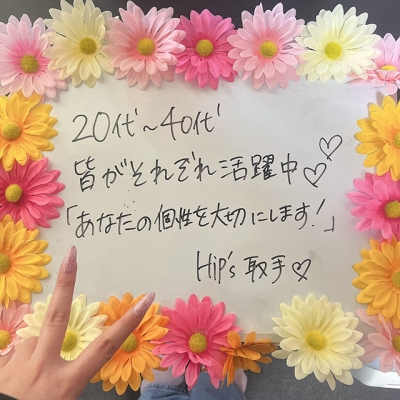 20代~40代
皆がそれぞれ活躍中♡♡
「あなたの個性を大切にします!」
Hip's 取手♡